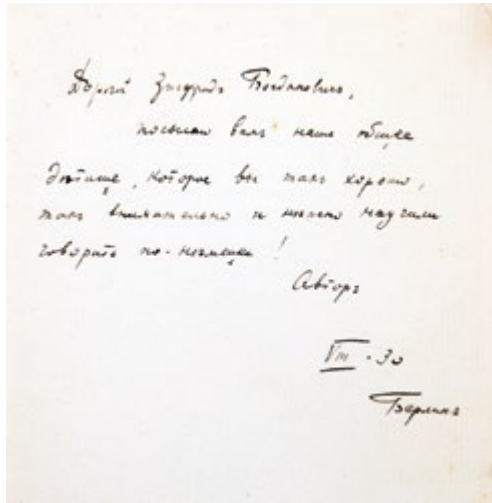 Дорогой Зигурдъ Богдановичъ,
посылаю вамъ наше общее
дѣтище, которое вы такъ хорошо,
такъ внимательно и нѣжно научили
говорить по-нѣмецки!
Авторъ
VIII-30
Берлинъ